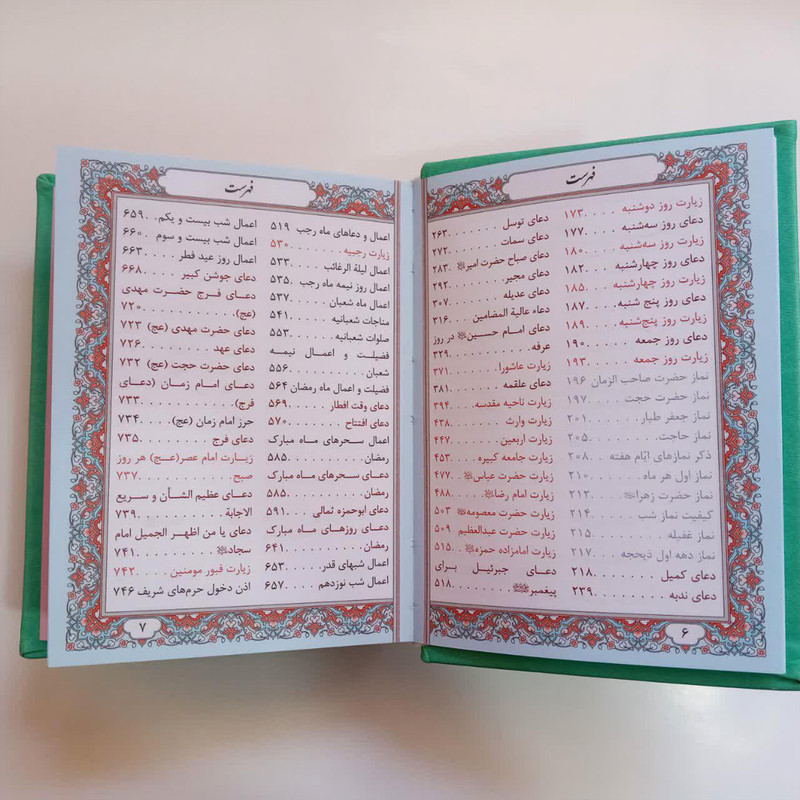 فهرست
زیارت روز دوشنبه . . . . . ۱۷۳
دعای روز سه‌شنبه . . . . . ۱۷۷
زیارت روز سه‌شنبه . . . . ۱۸۰
دعای روز چهارشنبه . . . . ۱۸۲
زیارت روز چهارشنبه . . . . ۱۸۵
دعای روز پنج شنبه . . . . ۱۸۷
زیارت روز پنج‌شنبه . . . . ۱۸۹
دعای روز جمعه . . . . . . ۱۹۰
زیارت روز جمعه . . . . . . ۱۹۳
نماز حضرت صاحب الزمان ۱۹۶
نماز حضرت حجت . . . . ۱۹۷
نماز جعفر طیار . . . . . . ۲۰۱
نماز حاجت . . . . . . . . ۲۰۵
ذکر نمازهای ایّام هفته . . ۲۰۸
نماز اول هر ماه . . . . . . ۲۱۰
نماز حضرت زهرا . . . . ۲۱۲
کیفیت نماز شب . . . . . ۲۱۴
نماز غفیله . . . . . . . . ۲۱۵
نماز دهه اول ذیحجه . . . ۲۱۷
دعای کمیل . . . . . . . . ۲۱۸
دعای ندبه . . . . . . . . ۲۳۹
دعای توسل . . . . . . . ۲۶۳
دعای سمات . . . . . . . ۲۷۲
دعای صباح حضرت امیر ۲۸۳
دعای مجیر . . . . . . . . ۲۹۲
دعای عدیله . . . . . . . ۳۰۷
دعاء عالیة المضامین . . . ۳۱۶
دعای امام حسین در روز
عرفه . . . . . . . . . . . ۳۲۹
زیارت عاشورا . . . . . . . ۳۷۱
دعای علقمه . . . . . . . ۳۸۱
زیارت ناحیه مقدسه . . . . ۳۹۴
زیارت وارث . . . . . . . ۴۳۸
زیارت اربعین . . . . . . . ۴۴۷
زیارت جامعه کبیره . . . . ۴۵۳
زیارت حضرت عباس . . ۴۷۷
زیارت امام رضا . . . . ۴۸۸
زیارت حضرت معصومه ۵۰۳
زیارت حضرت عبدالعظیم ۵۰۹
زیارت امامزاده حمزه . . ۵۱۵
دعای جبرئیل برای
پیغمبر . . . . . . . . . ۵۱۸
۶
فهرست
اعمال و دعاهای ماه رجب ۵۱۹
زیارت رجبیه . . . . . . . ۵۳۰
اعمال لیلة الرغائب . . . . ۵۳۳
اعمال روز نیمه ماه رجب . ۵۳۵
اعمال ماه شعبان . . . . . ۵۳۷
مناجات شعبانیه . . . . . ۵۴۱
صلوات شعبانیه . . . . . . ۵۵۳
فضیلت و اعمال نیمه
شعبان . . . . . . . . . . ۵۵۶
فضیلت و اعمال ماه رمضان ۵۶۴
دعای وقت افطار . . . . . ۵۶۹
دعای افتتاح . . . . . . . ۵۷۰
اعمال سحرهای ماه مبارک
رمضان . . . . . . . . . . ۵۸۵
دعای سحرهای ماه مبارک
رمضان . . . . . . . . . . ۵۸۵
دعای ابوحمزه ثمالی . . . ۵۹۱
دعای روزهای ماه مبارک
رمضان . . . . . . . . . . ۶۴۱
اعمال شبهای قدر . . . . ۶۵۳
اعمال شب نوزدهم . . . . ۶۵۷
اعمال شب بیست و یکم . . ۶۵۹
اعمال شب بیست و سوم . . ۶۶۰
اعمال روز عید فطر . . . . ۶۶۳
دعای جوشن کبیر . . . . ۶۶۸
دعای فرج حضرت مهدی
(عج) . . . . . . . . . . . ۷۲۰
دعای حضرت مهدی (عج) ۷۲۳
دعای عهد . . . . . . . . ۷۲۶
دعای حضرت حجت (عج) ۷۳۲
دعای امام زمان (دعای
فرج) . . . . . . . . . . . ۷۳۳
حرز امام زمان (عج) . . . ۷۳۴
دعای فرج . . . . . . . . ۷۳۵
زیارت امام عصر(عج) هر روز
صبح . . . . . . . . . . . ۷۳۷
دعای عظیم الشأن و سریع
الاجابة . . . . . . . . . . ۷۳۹
دعای یا من اظهر الجمیل امام
سجاد . . . . . . . . . . ۷۴۱
زیارت قبور مومنین . . . . ۷۴۲
اذن دخول حرم‌های شریف ۷۴۶
۷